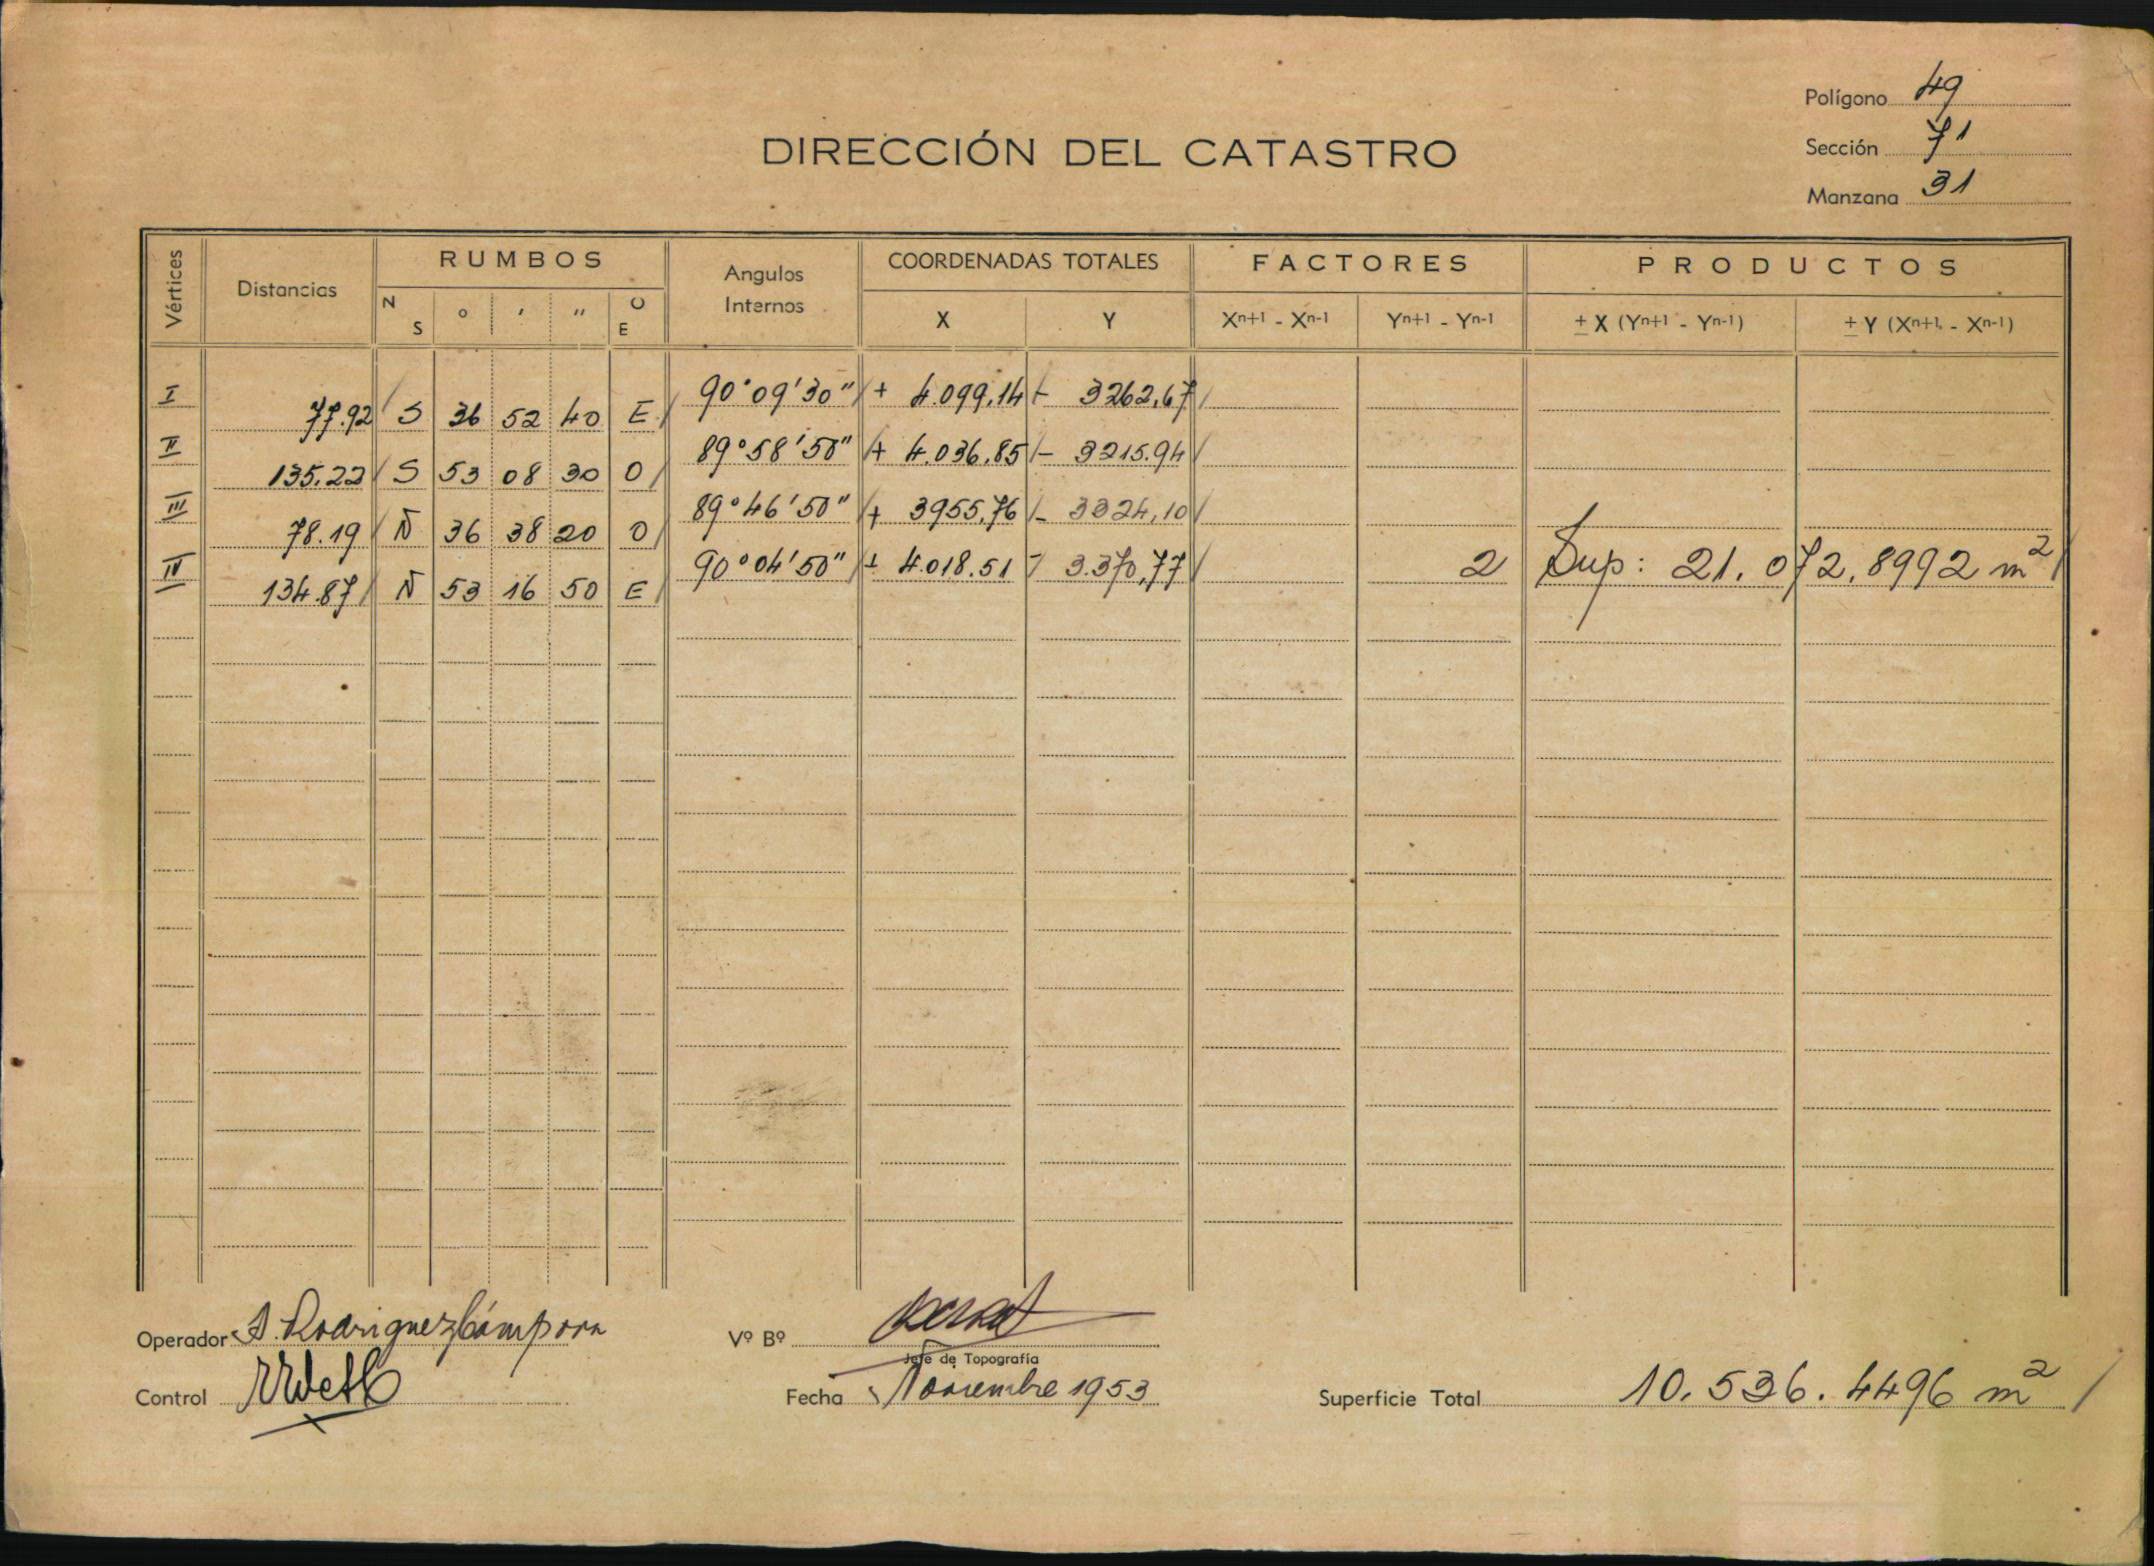 Polígono 49
DIRECCIÓN DEL CATASTRO
Sección 71
Manzana 31
Vértices Distancias RUMBOS Angulos Internos COORDENADAS TOTALES FACTORES PRODUCTOS
N S ° ' '' O E X Y Xn+1 - Xn-1 Yn+1 - Yn-1 ± X (Yn+1 - Yn-1) ± Y (Xn+1 - Xn-1)
I 90°09'30" + 4.099,14 - 3262,67
77.92 S 36 52 40 E
II 89°58'50" + 4.036,85 - 3215.94
135.22 S 53 08 30 O
III 89°46'50" + 3955,76 - 3324,10
78.19 N 36 38 20 O
IV 90°04'50" + 4.018.51 - 3.370,77 2 Sup: 21.072,8992 m2
134.87 N 53 16 50 E
Operador A. Rodriguez Cámpora Vº Bº
Jefe de Topografía
Control Fecha Noviembre 1953 Superficie Total 10.536.4496 m2